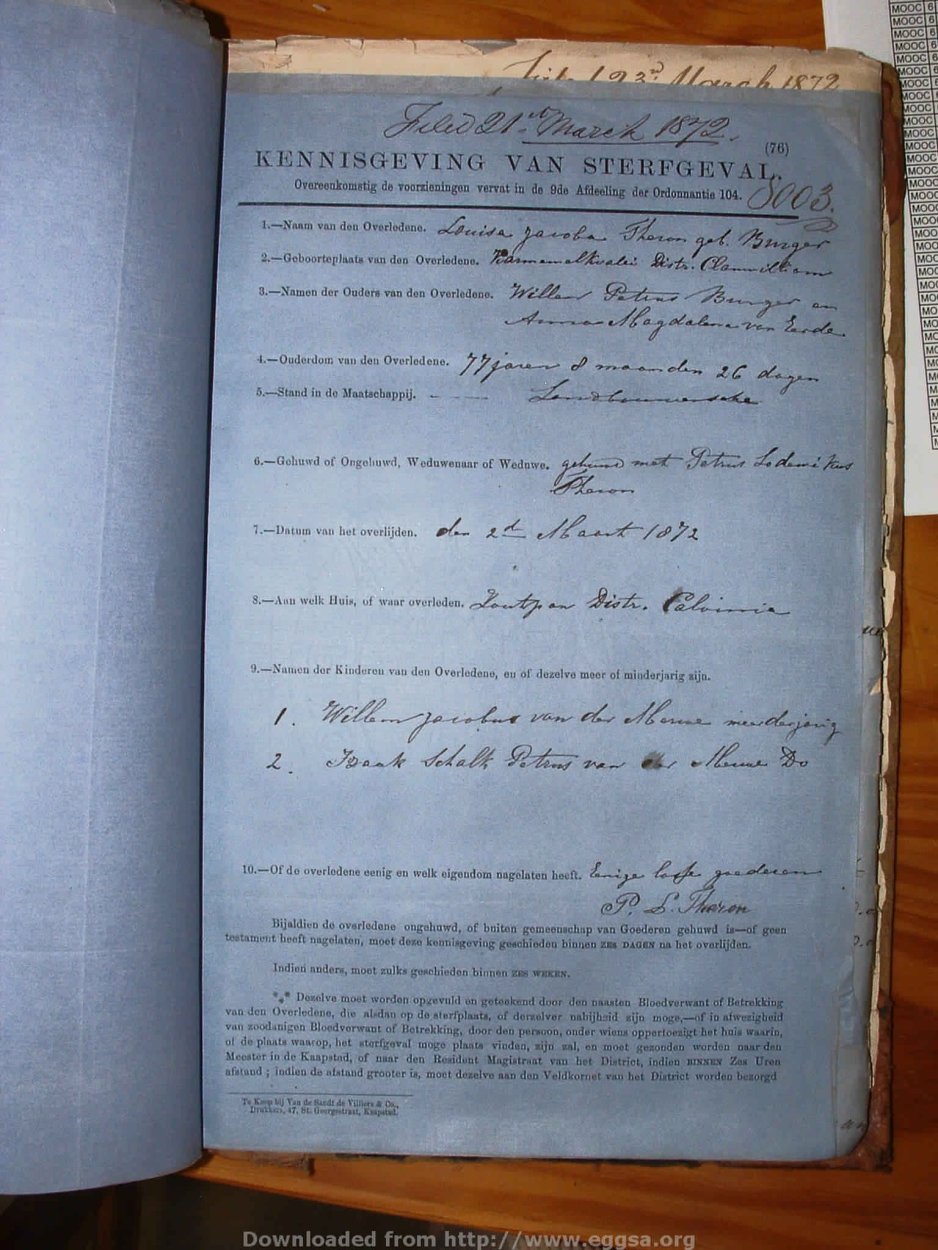 MOOC 6
MOOC 6
MOOC 6
MOOC 6
MOOC 6
MOOC 6
MOOC
MOOC
MOOC
MOOC
MOOC
MOOC
23rd March 1872
Filed 21st March 1872.
(76)
KENNISGEVING VAN STERFGEVAL.
Overeenkomstig de voorzieningen vervat in de 9de Afdeeling der Ordonnantie 104.
8003.
1.—Naam van den Overledene. Louisa Jacoba Theron geb. Burger
2.—Geboorteplaats van den Overledene. Distr. Clanwilliam
3.—Namen der Ouders van den Overledene. Willem Petrus Burger en
Anna Magdalena van Eerde
4.—Ouderdom van den Overledene. 77 jaren 8 maanden 26 dagen
5.—Stand in de Maatschappij. Landbouwersche
6.—Gehuwd of Ongehuwd, Weduwenaar of Weduwe. gehuwd met Petrus Lodewikus
Theron
7.—Datum van het overlijden. den 2d Maart 1872
8.—Aan welk Huis, of waar overleden. Zoutpan Distr. Calvinia
9.—Namen der Kinderen van den Overledene, en of dezelve meer of minderjarig zijn.
1. Willem Jacobus van der Merwe meerderjarig
2. Izaak Schalk Petrus van der Merwe Do
10.—Of de overledene eenig en welk eigendom nagelaten heeft. Eenige losse goederen
P. L. Theron
Bijaldien de overledene ongehuwd, of buiten gemeenschap van Goederen gehuwd is—of geen
testament heeft nagelaten, moet deze kennisgeving geschieden binnen ZES DAGEN na het overlijden.
Indien anders, moet zulks geschieden binnen ZES WEKEN.
*** Dezelve moet worden opgevuld en geteekend door den naasten Bloedverwant of Betrekking
van den Overledene, die alsdan op de sterfplaats, of derzelver nabijheid zijn moge,—of in afwezigheid
van zoodanigen Bloedverwant of Betrekking, door den persoon, onder wiens oppertoezigt het huis waarin,
of de plaats waarop, het sterfgeval moge plaats vinden, zijn zal, en moet gezonden worden naar den
Meester in de Kaapstad, of naar den Resident Magistraat van het District, indien BINNEN Zes Uren
afstand ; indien de afstand grooter is, moet dezelve aan den Veldkornet van het District worden bezorgd
Te Koop bij Van de Sandt de Villiers & Co.,
Drukkers, 47, St. Georgestraat, Kaapstad.
Downloaded from http://www.eggsa.org